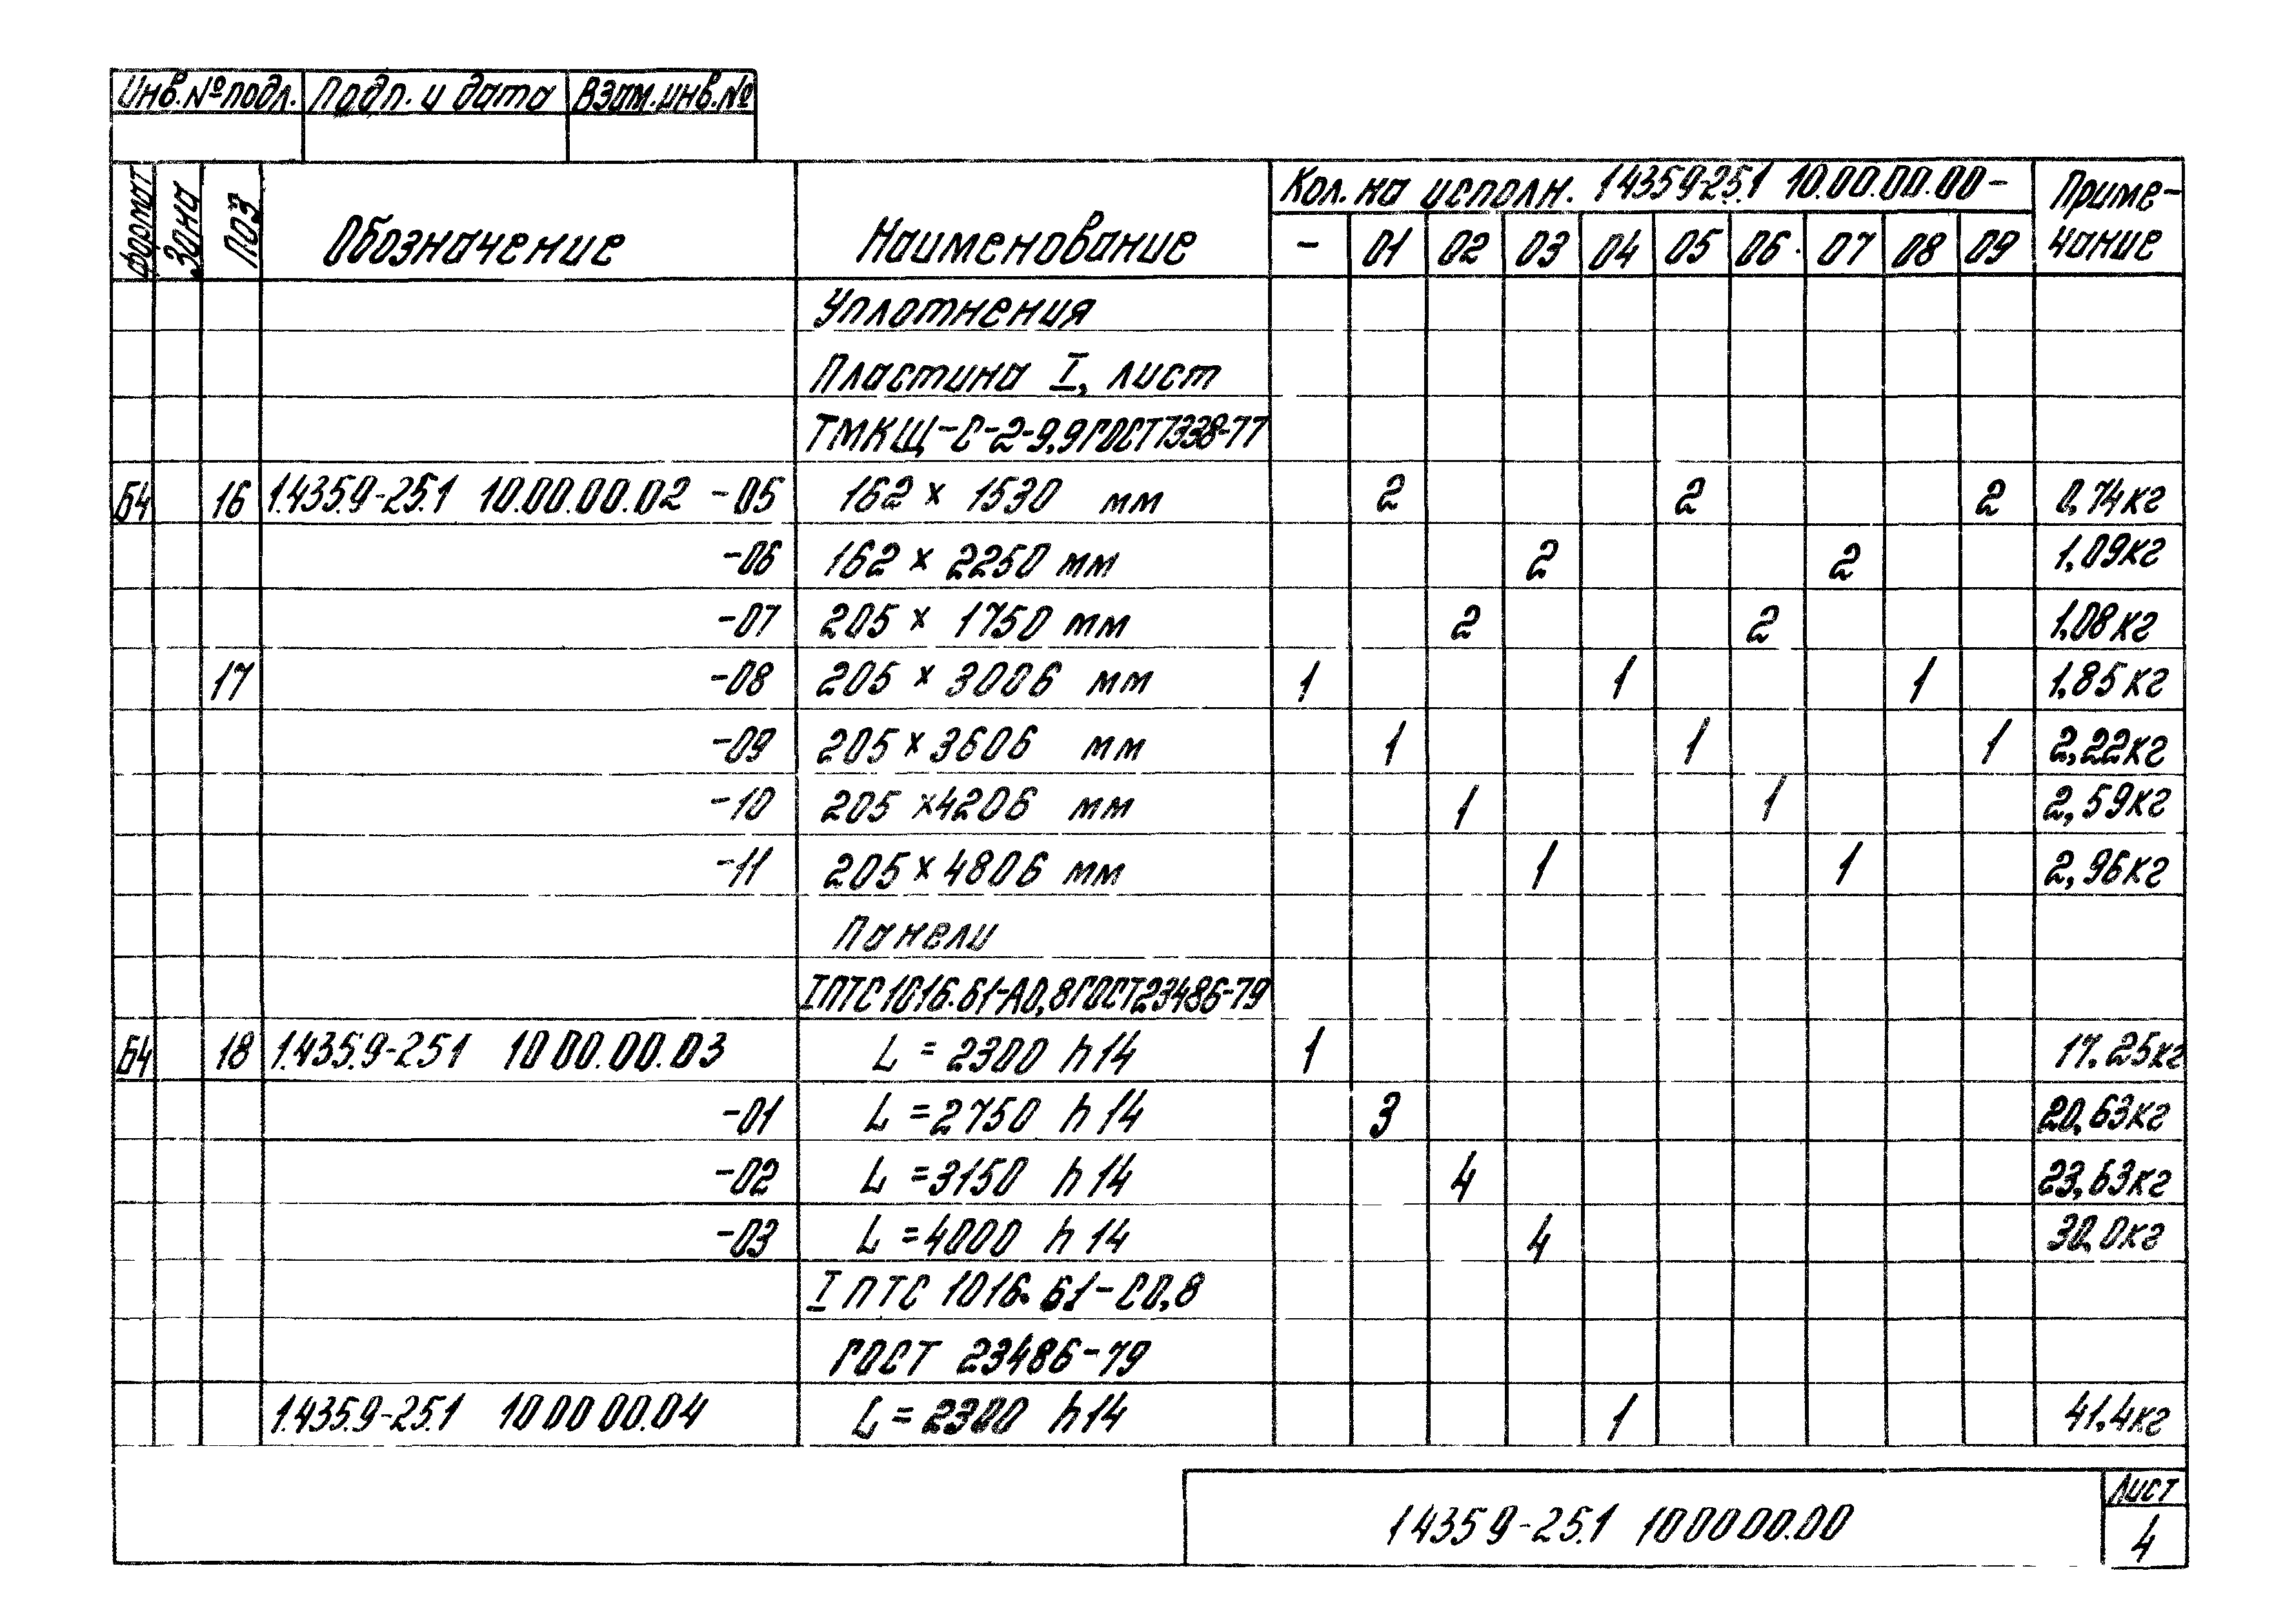 Инв.№подл. Подп. и дата Взам.инв.№
формат Зона поз Обозначение Наименование Кол. на исполн. 1.435.9-25.1 10.00.00.00- Приме-
- 01 02 03 04 05 06 07 08 09 чание
Уплотнения
Пластина I, лист
ТМКЩ-С-2-9,9 ГОСТ 7338-77
БЧ 16 1.435.9-25.1 10.00.00.02 -05 162 × 1530 мм 2 2 2 0,74кг
-06 162 × 2250 мм 2 2 1,09кг
-07 205 × 1750 мм 2 2 1,08кг
17 -08 205 × 3006 мм 1 1 1 1,85кг
-09 205 × 3606 мм 1 1 1 2,22кг
-10 205 ×4206 мм 1 1 2,59кг
-11 205 × 4806 мм 1 1 2,96кг
Панели
IПТС 1016.61-А0,8 ГОСТ 23486-79
БЧ 18 1.435.9-25.1 10 00.00.03 L = 2300 h14 1 17.25кг
-01 L = 2750 h14 3 20,63кг
-02 L = 3150 h14 4 23,63кг
-03 L = 4000 h14 4 30,0кг
I ПТС 1016.61-С0,8
ГОСТ 23486-79
1.435.9-25.1 10 00 00.04 L = 2300 h14 1 41,4кг
1 435 9-25.1 10 00 00.00 Лист
4